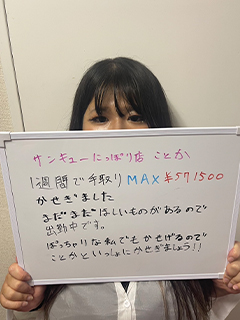 サンキューにっぽり店 ことか
1週間で手取りMAX¥571500
かせぎました
まだまだほしいものがあるので
出勤中です。
ぽっちゃりな私でもかせげるので
ことかといっしょにかせぎましょう!!